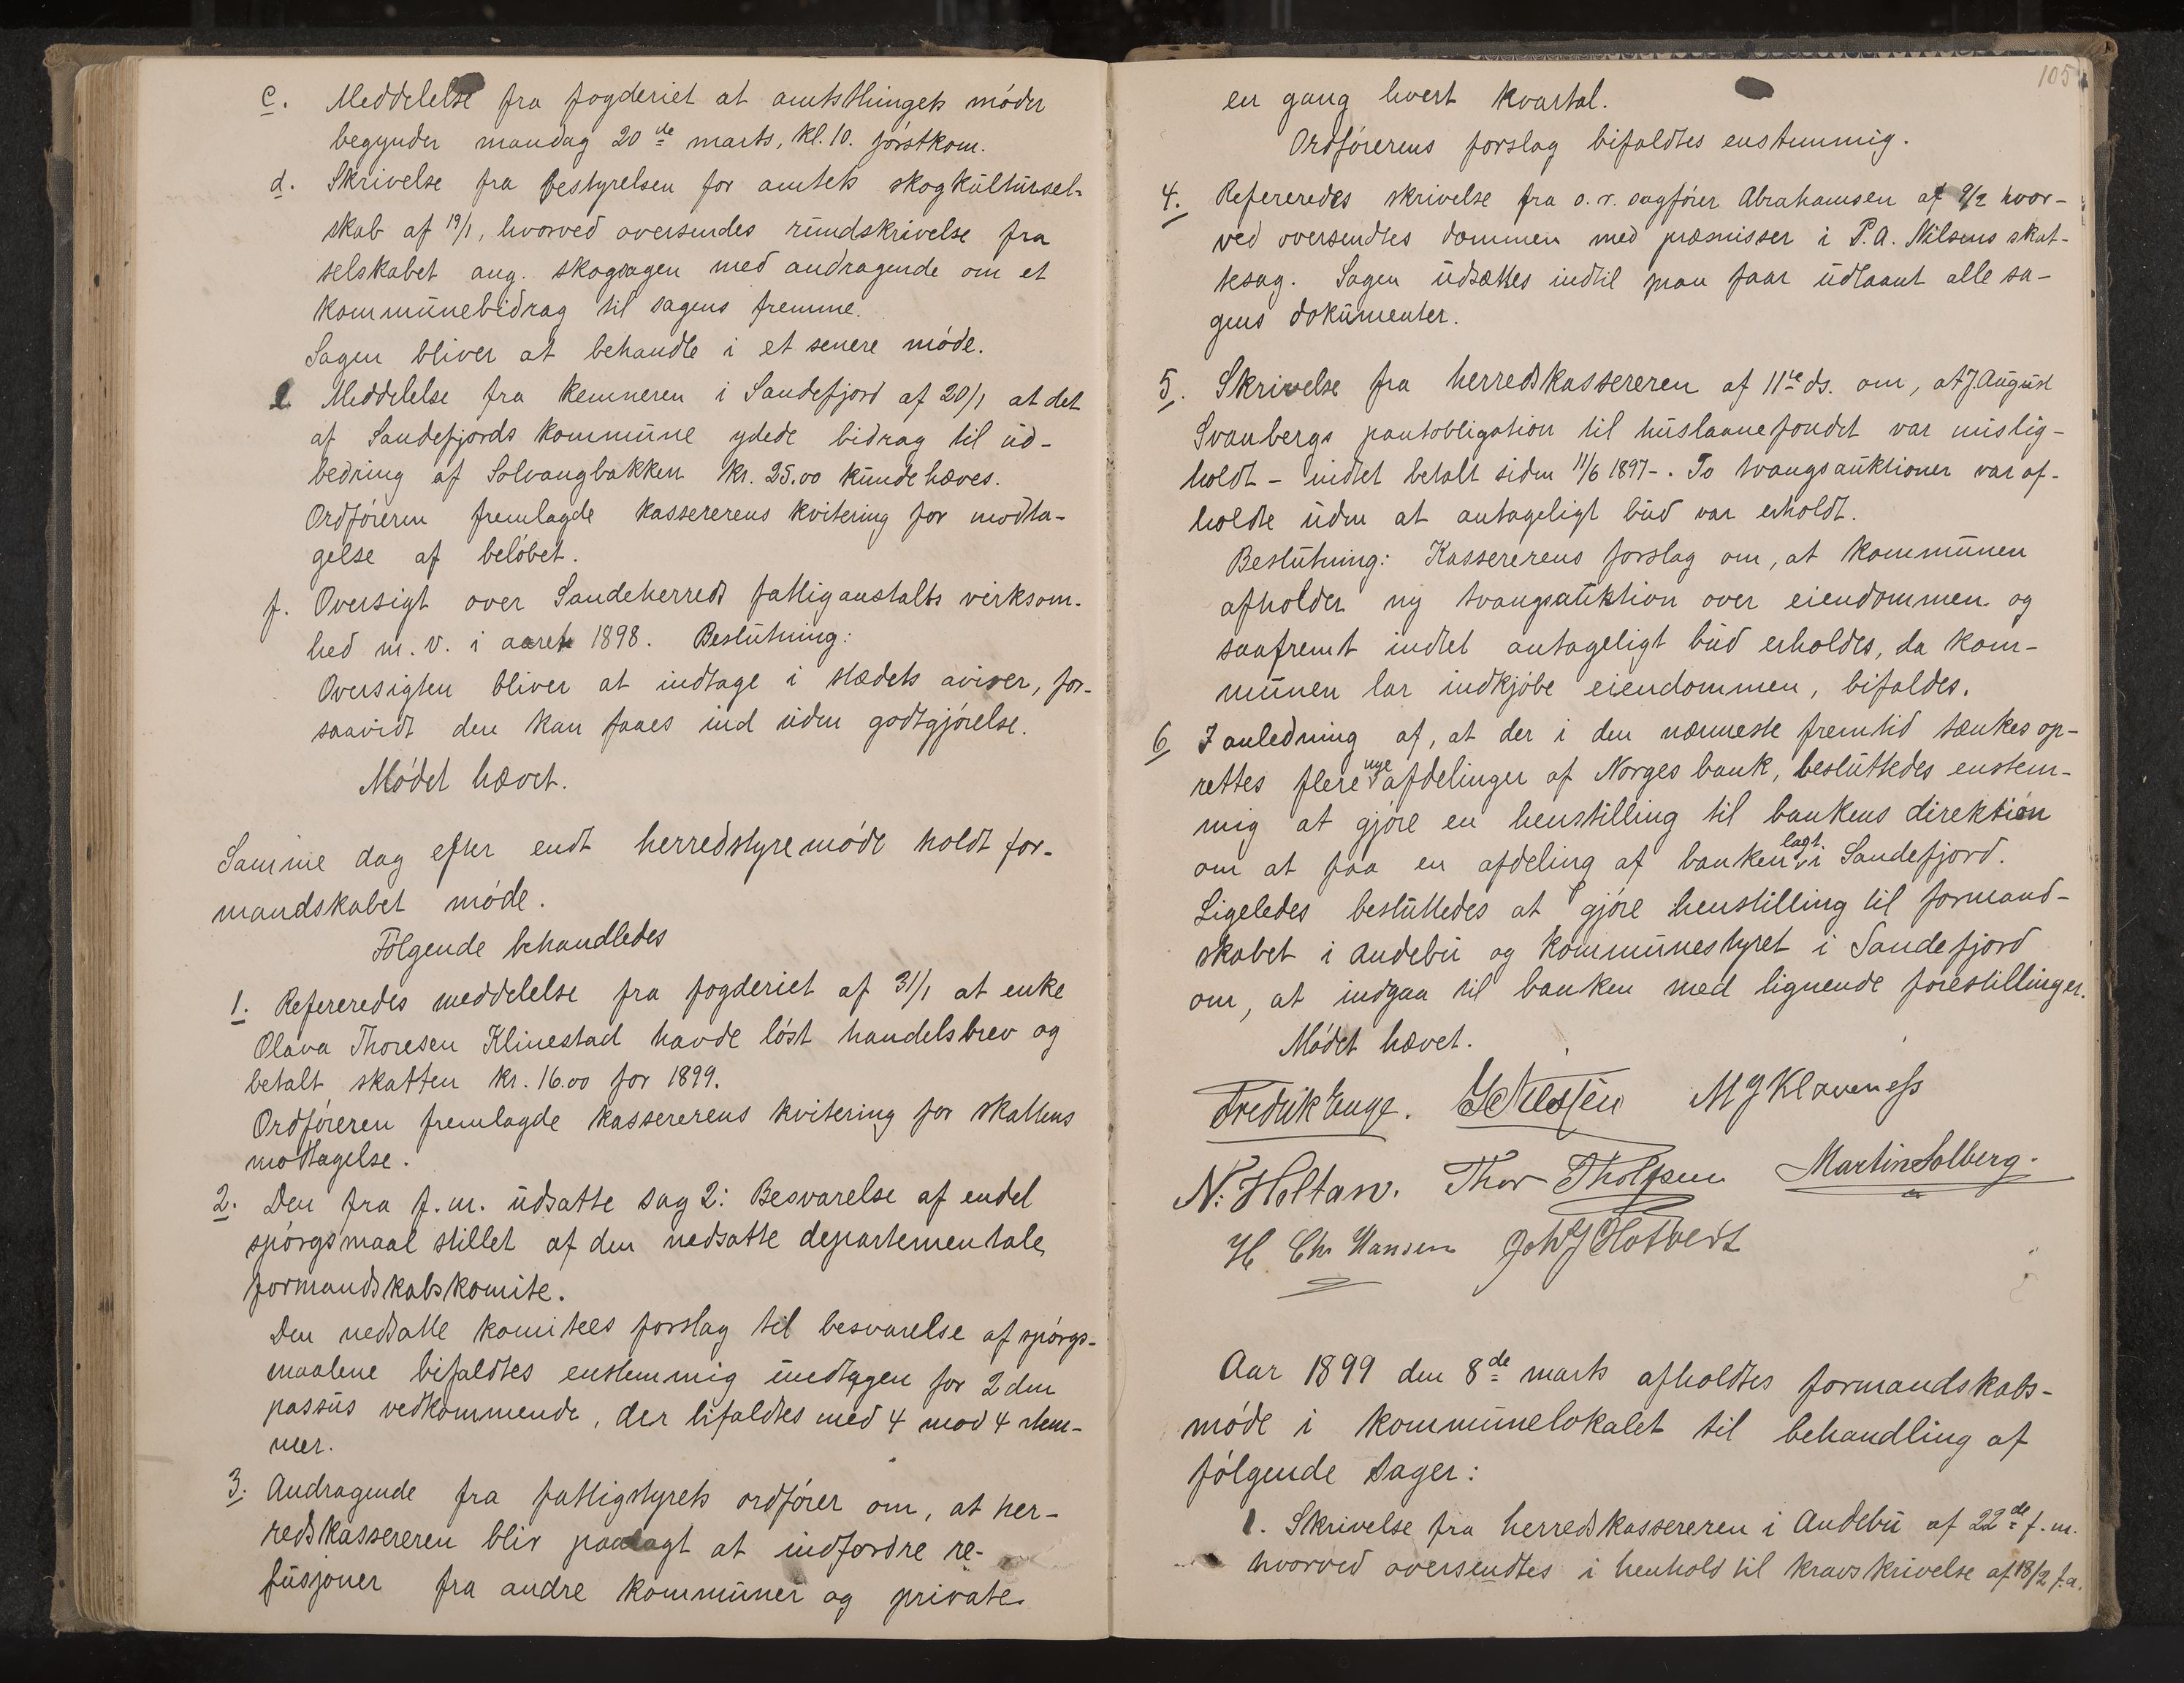 c. Meddelelse fra fogderiet at amtsthingets møder
begynder mandag 20de marts, kl. 10. førstkom.
d. Skrivelse fra bestyrelsen for amtets skogkultursel-
skab af 19/1, hvorved oversendes rundskrivelse fra
selskabet ang. skogsagen med andragende om et
kommunebidrag til sagens fremme.
Sagen bliver at behandle i et senere møde.
e Meddelelse fra kemneren i Sandefjord af 20/1 at det
af Sandefjords kommune ydede bidrag til ud-
bedring af Solvangbakken kr. 25.00 kunde hæves.
Ordføreren fremlagde kassererens kvitering for modta-
gelse af beløbet.
f. Oversigt over Sandeherreds fattiganstalts virksom-
hed m. v. i aaret 1898. Beslutning:
Oversigten bliver at indtage i stedets aviser, for-
saavidt den kan faaes ind uden godtgjørelse.
Mødet hævet.
Samme dag efter endt herredstyremøde holdt for-
mandskabet møde.
Følgende behandledes
1. Refereredes meddelelse fra fogderiet af 31/1 at enke
Olava Thoresen Klinestad havde løst handelsbrev og
betalt skatten kr. 16.00 for 1899.
Ordføreren fremlagde kassererens kvitering for skattens
modtagelse.
2. Den fra f. m. udsatte sag 2: Besvarelse af endel
spørgsmaal stillet af den nedsatte departementale
formandskabskomite.
Den nedsatte komitees forslag til besvarelse af spørgs-
maalene bifaldtes enstemmig undtagen for 2 den
passus vedkommende, der bifaldtes med 4 mod 4 stem-
mer.
3. Andragende fra fattigstyrets ordfører om, at her-
redskassereren blir paalagt at indfordre re-
fusjoner fra andre kommuner og private
105
en gang hvert kvartal.
Ordførerens forslag bifaldtes enstemmig.
4. Refereredes skrivelse fra o. r. sagfører Abrahamsen af 9/2 hvor-
ved oversendtes dommen med præmisser i P. A. Nilsens skat-
tesag. Sagen udsættes indtil man faar udlaant alle sa-
gens dokumenter.
5. Skrivelse fra herredskassereren af 11te ds. om, at J. August
Svanbergs pantobligation til huslaanefondet var mislig-
holdt - indtet betalt siden 11/6 1897-. To tvangsauktioner var af-
holdte uden at antageligt bud var erholdt.
Beslutning: Kassererens forslag om, at kommunen
afholder ny tvangsauktion over eiendommen og
saafremt indtet antageligt bud erholdes, da kom-
munen lar indkjøbe eiendommen, bifaldes.
6 I anledning af, at der i den nærmeste fremtid tænkes op-
rettes flere nye afdelinger af Norges bank, besluttedes enstem-
mig at gjøre en henstilling til bankens direktion
om at faa en afdeling af banken lagt i Sandefjord.
Ligeledes besluttedes at gjøre henstilling til formand-
skabet i Andebu og kommunestyret i Sandefjord
om, at indgaa til banken med lignende forestillinger.
Mødet hævet.
Fredrik Enge. M J Klaveness
N. Holtan. Thor Tholfsen Martin Solberg.
H. Chr Hansen Joh J Hotvedt
Aar 1899 den 8de marts afholdtes formandskabs-
møde i kommunelokalet til behandling af
følgende sager:
1. Skrivelse fra herredskassereren i Andebu af 22de f. m.
hvorved oversendtes i henhold til kravskrivelse af 18/2 f. a.